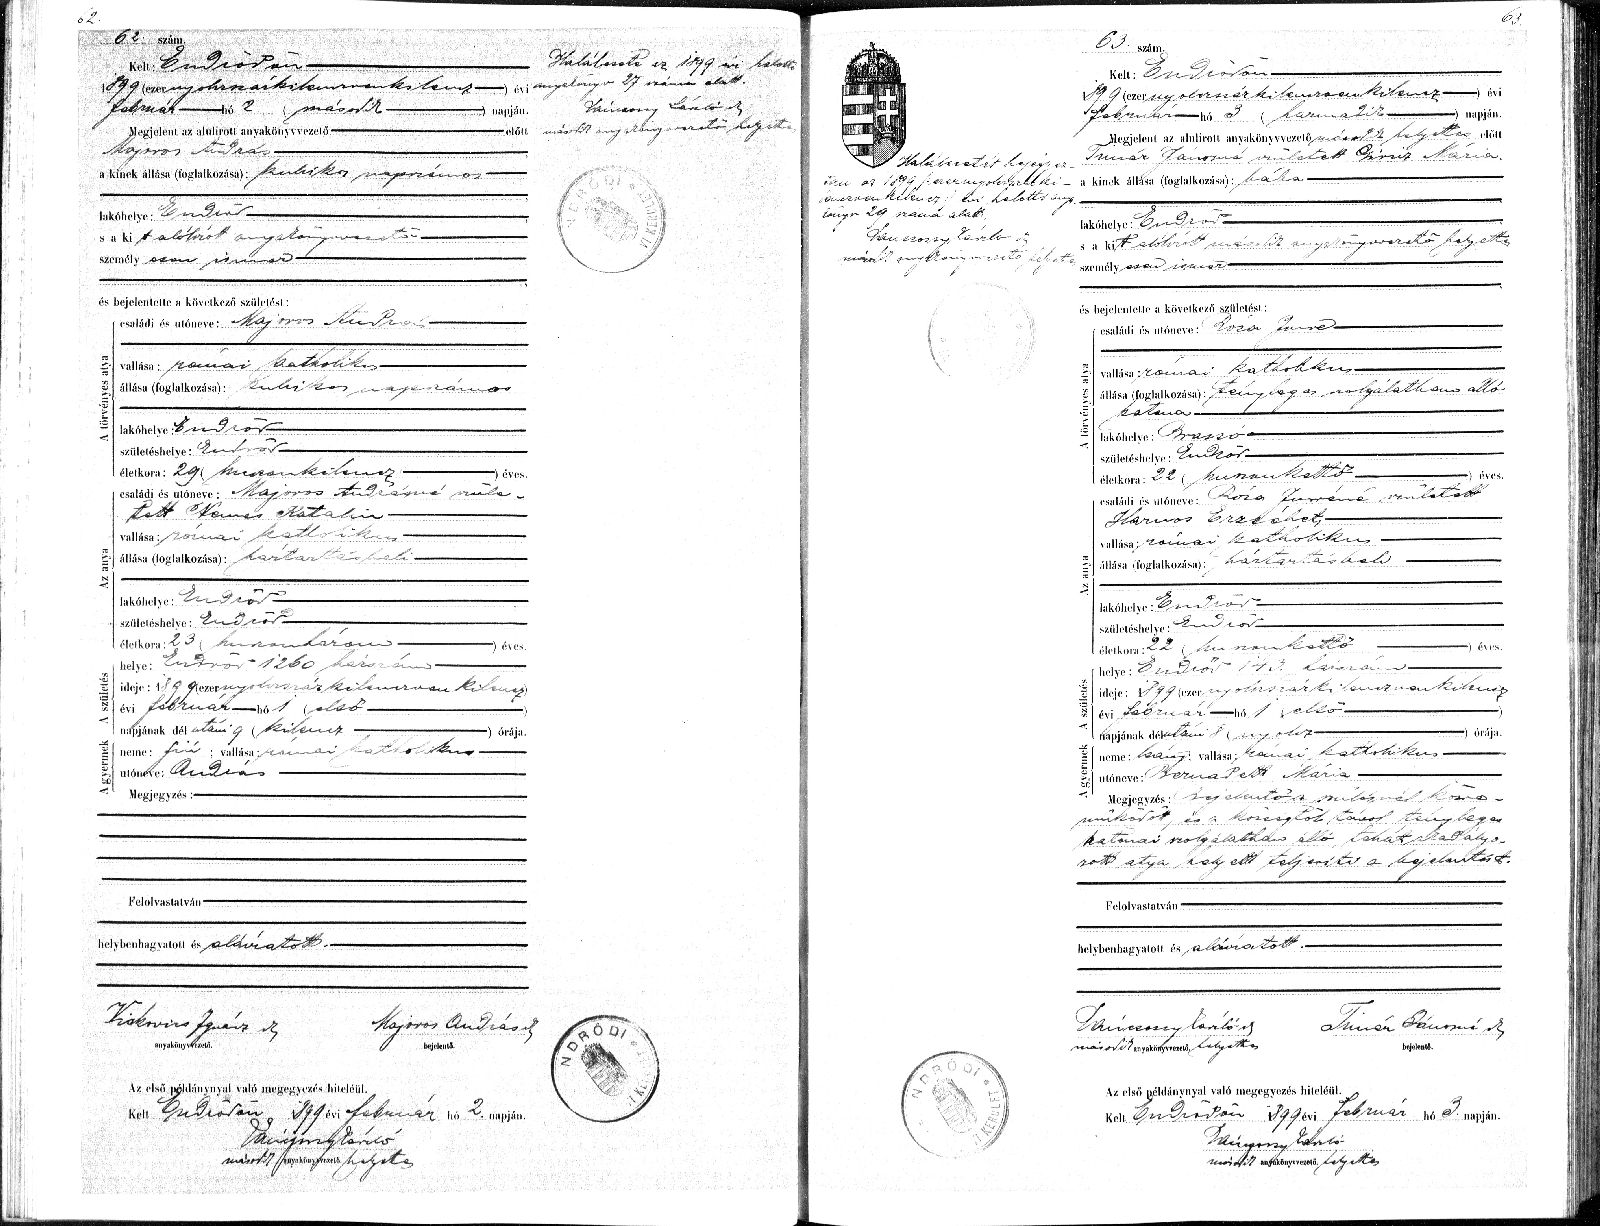 62.
62. szám.
Kelt: Endrődön
1899 (ezernyolczszázkilenczvenkilencz) évi
február hó 2 (második) napján.
Megjelent az alulirott anyakönyvvezető előtt
Majoros András
a kinek állása (foglalkozása): kubikos napszámos
lakóhelye: Endrőd
s a kit alólirott anyakönyvvezető
személyesen ismer
és bejelentette a következő születést:
A törvényes atya
családi és utóneve: Majoros András
vallása: római katholikus
állása (foglalkozása): kubikos napszámos
lakóhelye: Endrőd
születéshelye: Endrőd
életkora: 29 (huszonkilencz) éves.
Az anya
családi és utóneve: Majoros Andrásné szüle-
tett Vemes Katalin
vallása: római katholikus
állása (foglalkozása): háztartásbeli
lakóhelye: Endrőd
születéshelye: Endrőd
életkora: 23 (huszonhárom) éves.
A születés
helye: Endrőd 1260 házszám
ideje: 1899 (ezernyolczszázkilenczvenkilencz)
évi február hó 1 (első)
napjának délutáni 9 (kilencz) órája.
A gyermek
neme: fiú; vallása: római katholikus
utóneve: András
Megjegyzés:
Felolvastatván
helybenhagyatott és aláíratott.
Viskovics Ignácz sk
anyakönyvvezető.
Majoros András sk
bejelentő.
Az első példánynyal való megegyezés hiteléül.
Kelt Endrődön 1899 évi február hó 2. napján.
László
második anyakönyvvezető helyettes
Halálesete az 1899 évi halotti
anyakönyv 27 száma alatt.
László sk
második anyakönyvvezető helyettes
NDRŐDI
63.
63. szám.
Kelt: Endrődön
1899 (ezernyolczszázkilenczvenkilencz) évi
február hó 3 (harmadik) napján.
Megjelent az alulirott anyakönyvvezető második helyettes előtt
Timár Jánosné született Mária
a kinek állása (foglalkozása): bába
lakóhelye: Endrőd
s a kit alólirott második anyakönyvvezető helyettes
személyesen ismer
és bejelentette a következő születést:
A törvényes atya
családi és utóneve: Róza Imre
vallása: római katholikus
állása (foglalkozása): tényleges szolgálatban álló
katona
lakóhelye: Brassó
születéshelye: Endrőd
életkora: 22 (huszonkettő) éves.
Az anya
családi és utóneve: Róza Imréné született
Harmos Erzsébet
vallása: római katholikus
állása (foglalkozása): háztartásbeli
lakóhelye: Endrőd
születéshelye: Endrőd
életkora: 22 (huszonkettő) éves.
A születés
helye: Endrőd 143. házszám
ideje: 1899 (ezernyolczszázkilenczvenkilencz)
évi február hó 1 (első)
napjának délutáni 8 (nyolcz) órája.
A gyermek
neme: leány; vallása: római katholikus
utóneve: Bernadett Mária
Megjegyzés: bejelentő a szülésnél köz-
működött, és a községtől távol tényleges
katonai szolgálatban álló tehát akadályo-
zott atya helyett teljesíti a bejelentést.
Felolvastatván
helybenhagyatott és aláíratott.
László sk
második anyakönyvvezető helyettes
Timár Jánosné sk
bejelentő.
Az első példánynyal való megegyezés hiteléül.
Kelt Endrődön 1899 évi február hó 3. napján.
László
második anyakönyvvezető helyettes
Halálesetét bejegyez-
tem az 1899 (ezernyolczszázki-
lenczvenkilencz) évi halotti any.
könyv 29 száma alatt.
László sk
második anyakönyvvezető helyettes
NDRŐDI